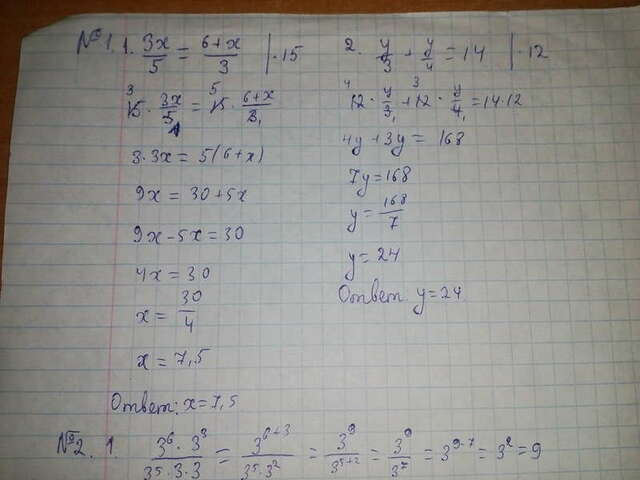 №1. 1. 3x/5 = 6+x/3 | ·15
15 · 3x/5 = 15 · 6+x/3
3·3x = 5(6+x)
9x = 30+5x
9x-5x=30
4x=30
x = 30/4
x = 7,5
Ответ: x=7,5
2. y/3 + y/4 = 14 | ·12
12 · y/3 + 12 · y/4 = 14·12
4y+3y = 168
7y=168
y = 168/7
y = 24
Ответ. y=24
№2. 1. 3⁶·3³/3⁵·3·3 = 3⁶⁺³/3⁵·3² = 3⁹/3⁵⁺² = 3⁹/3⁷ = 3⁹⁻⁷ = 3² = 9